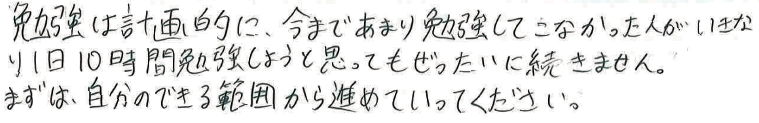 勉強は計画的に、今まであまり勉強してこなかった人がいきな
り1日10時間勉強しようと思ってもぜったいに続きません。
まずは、自分のできる範囲から進めていってください。